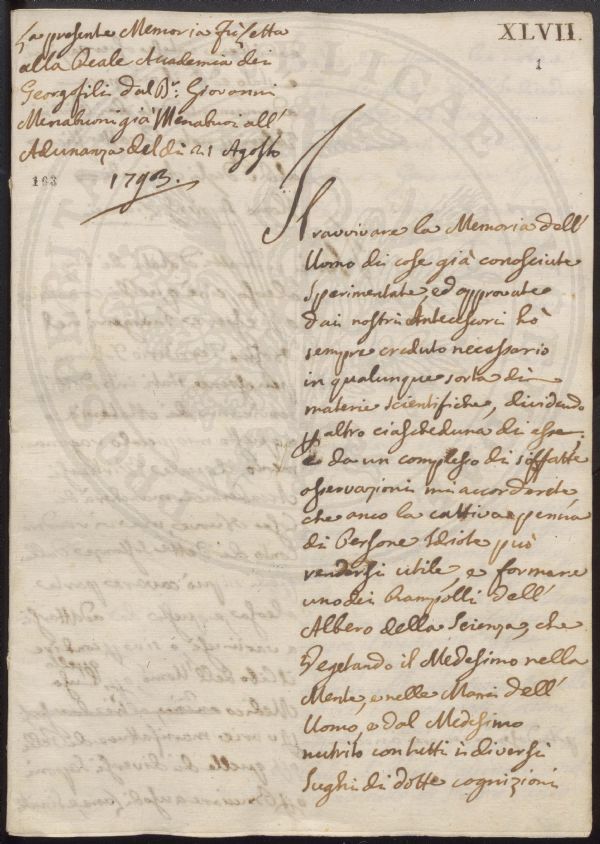 XLVII.
1
La presente Memoria fù letta
alla Reale Accademia dei
Georgofili dal Dr: Giovanni
Menabuoni già Menabuoi all'
Adunanza del dì 21 Agosto
1793.
163
Il ravvivare la Memoria dell'
Uomo di cose già conosciute
Sperimentate, ed approvate
dai nostri Antecessori hò
sempre creduto necessario
in qualunque sorta di
materie scientifiche, dividendo
altro ciascheduna di esse,
e da un complesso di siffatte
osservazioni mi accorderete,
che anco la cattiva penna
di Persone Idiote può
rendersi utile, e formare
uno dei Rampolli dell'
Albero della Scienza, che
Vegetando il Medesimo nella
Mente, e nelle Mani dell'
Uomo, e dal Medesimo
nutrito con tutti i diversi
Sughi di dotte cognizioni